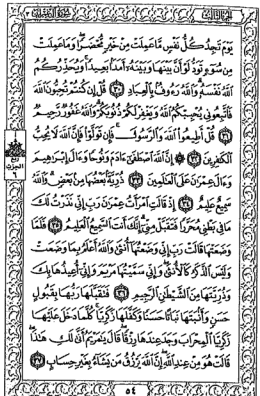 الجزء الثالث سورة آل عمران ٣
يَوْمَ تَجِدُ كُلُّ نَفْسٍ مَّا عَمِلَتْ مِنْ خَيْرٍ مُّحْضَرًا وَمَا عَمِلَتْ
مِن سُوٓءٍ تَوَدُّ لَوْ أَنَّ بَيْنَهَا وَبَيْنَهُۥٓ أَمَدًۢا بَعِيدًا وَيُحَذِّرُكُمُ
ٱللَّهُ نَفْسَهُۥ وَٱللَّهُ رَءُوفٌۢ بِٱلْعِبَادِ ٣٠ قُلْ إِن كُنتُمْ تُحِبُّونَ ٱللَّهَ
فَٱتَّبِعُونِى يُحْبِبْكُمُ ٱللَّهُ وَيَغْفِرْ لَكُمْ ذُنُوبَكُمْ وَٱللَّهُ غَفُورٌ رَّحِيمٌ
٣١ قُلْ أَطِيعُوا۟ ٱللَّهَ وَٱلرَّسُولَ فَإِن تَوَلَّوْا۟ فَإِنَّ ٱللَّهَ لَا يُحِبُّ
ٱلْكَٰفِرِينَ ٣٢ إِنَّ ٱللَّهَ ٱصْطَفَىٰٓ ءَادَمَ وَنُوحًا وَءَالَ إِبْرَٰهِيمَ
وَءَالَ عِمْرَٰنَ عَلَى ٱلْعَٰلَمِينَ ٣٣ ذُرِّيَّةًۢ بَعْضُهَا مِنۢ بَعْضٍ وَٱللَّهُ
سَمِيعٌ عَلِيمٌ ٣٤ إِذْ قَالَتِ ٱمْرَأَتُ عِمْرَٰنَ رَبِّ إِنِّى نَذَرْتُ لَكَ
مَا فِى بَطْنِى مُحَرَّرًا فَتَقَبَّلْ مِنِّىٓ إِنَّكَ أَنتَ ٱلسَّمِيعُ ٱلْعَلِيمُ ٣٥ فَلَمَّا
وَضَعَتْهَا قَالَتْ رَبِّ إِنِّى وَضَعْتُهَآ أُنثَىٰ وَٱللَّهُ أَعْلَمُ بِمَا وَضَعَتْ
وَلَيْسَ ٱلذَّكَرُ كَٱلْأُنثَىٰ وَإِنِّى سَمَّيْتُهَا مَرْيَمَ وَإِنِّىٓ أُعِيذُهَا بِكَ
وَذُرِّيَّتَهَا مِنَ ٱلشَّيْطَٰنِ ٱلرَّجِيمِ ٣٦ فَتَقَبَّلَهَا رَبُّهَا بِقَبُولٍ
حَسَنٍ وَأَنۢبَتَهَا نَبَاتًا حَسَنًا وَكَفَّلَهَا زَكَرِيَّا كُلَّمَا دَخَلَ عَلَيْهَا
زَكَرِيَّا ٱلْمِحْرَابَ وَجَدَ عِندَهَا رِزْقًا قَالَ يَٰمَرْيَمُ أَنَّىٰ لَكِ هَٰذَا
قَالَتْ هُوَ مِنْ عِندِ ٱللَّهِ إِنَّ ٱللَّهَ يَرْزُقُ مَن يَشَآءُ بِغَيْرِ حِسَابٍ ٣٧
ربع
الحزب
٦
٥٤